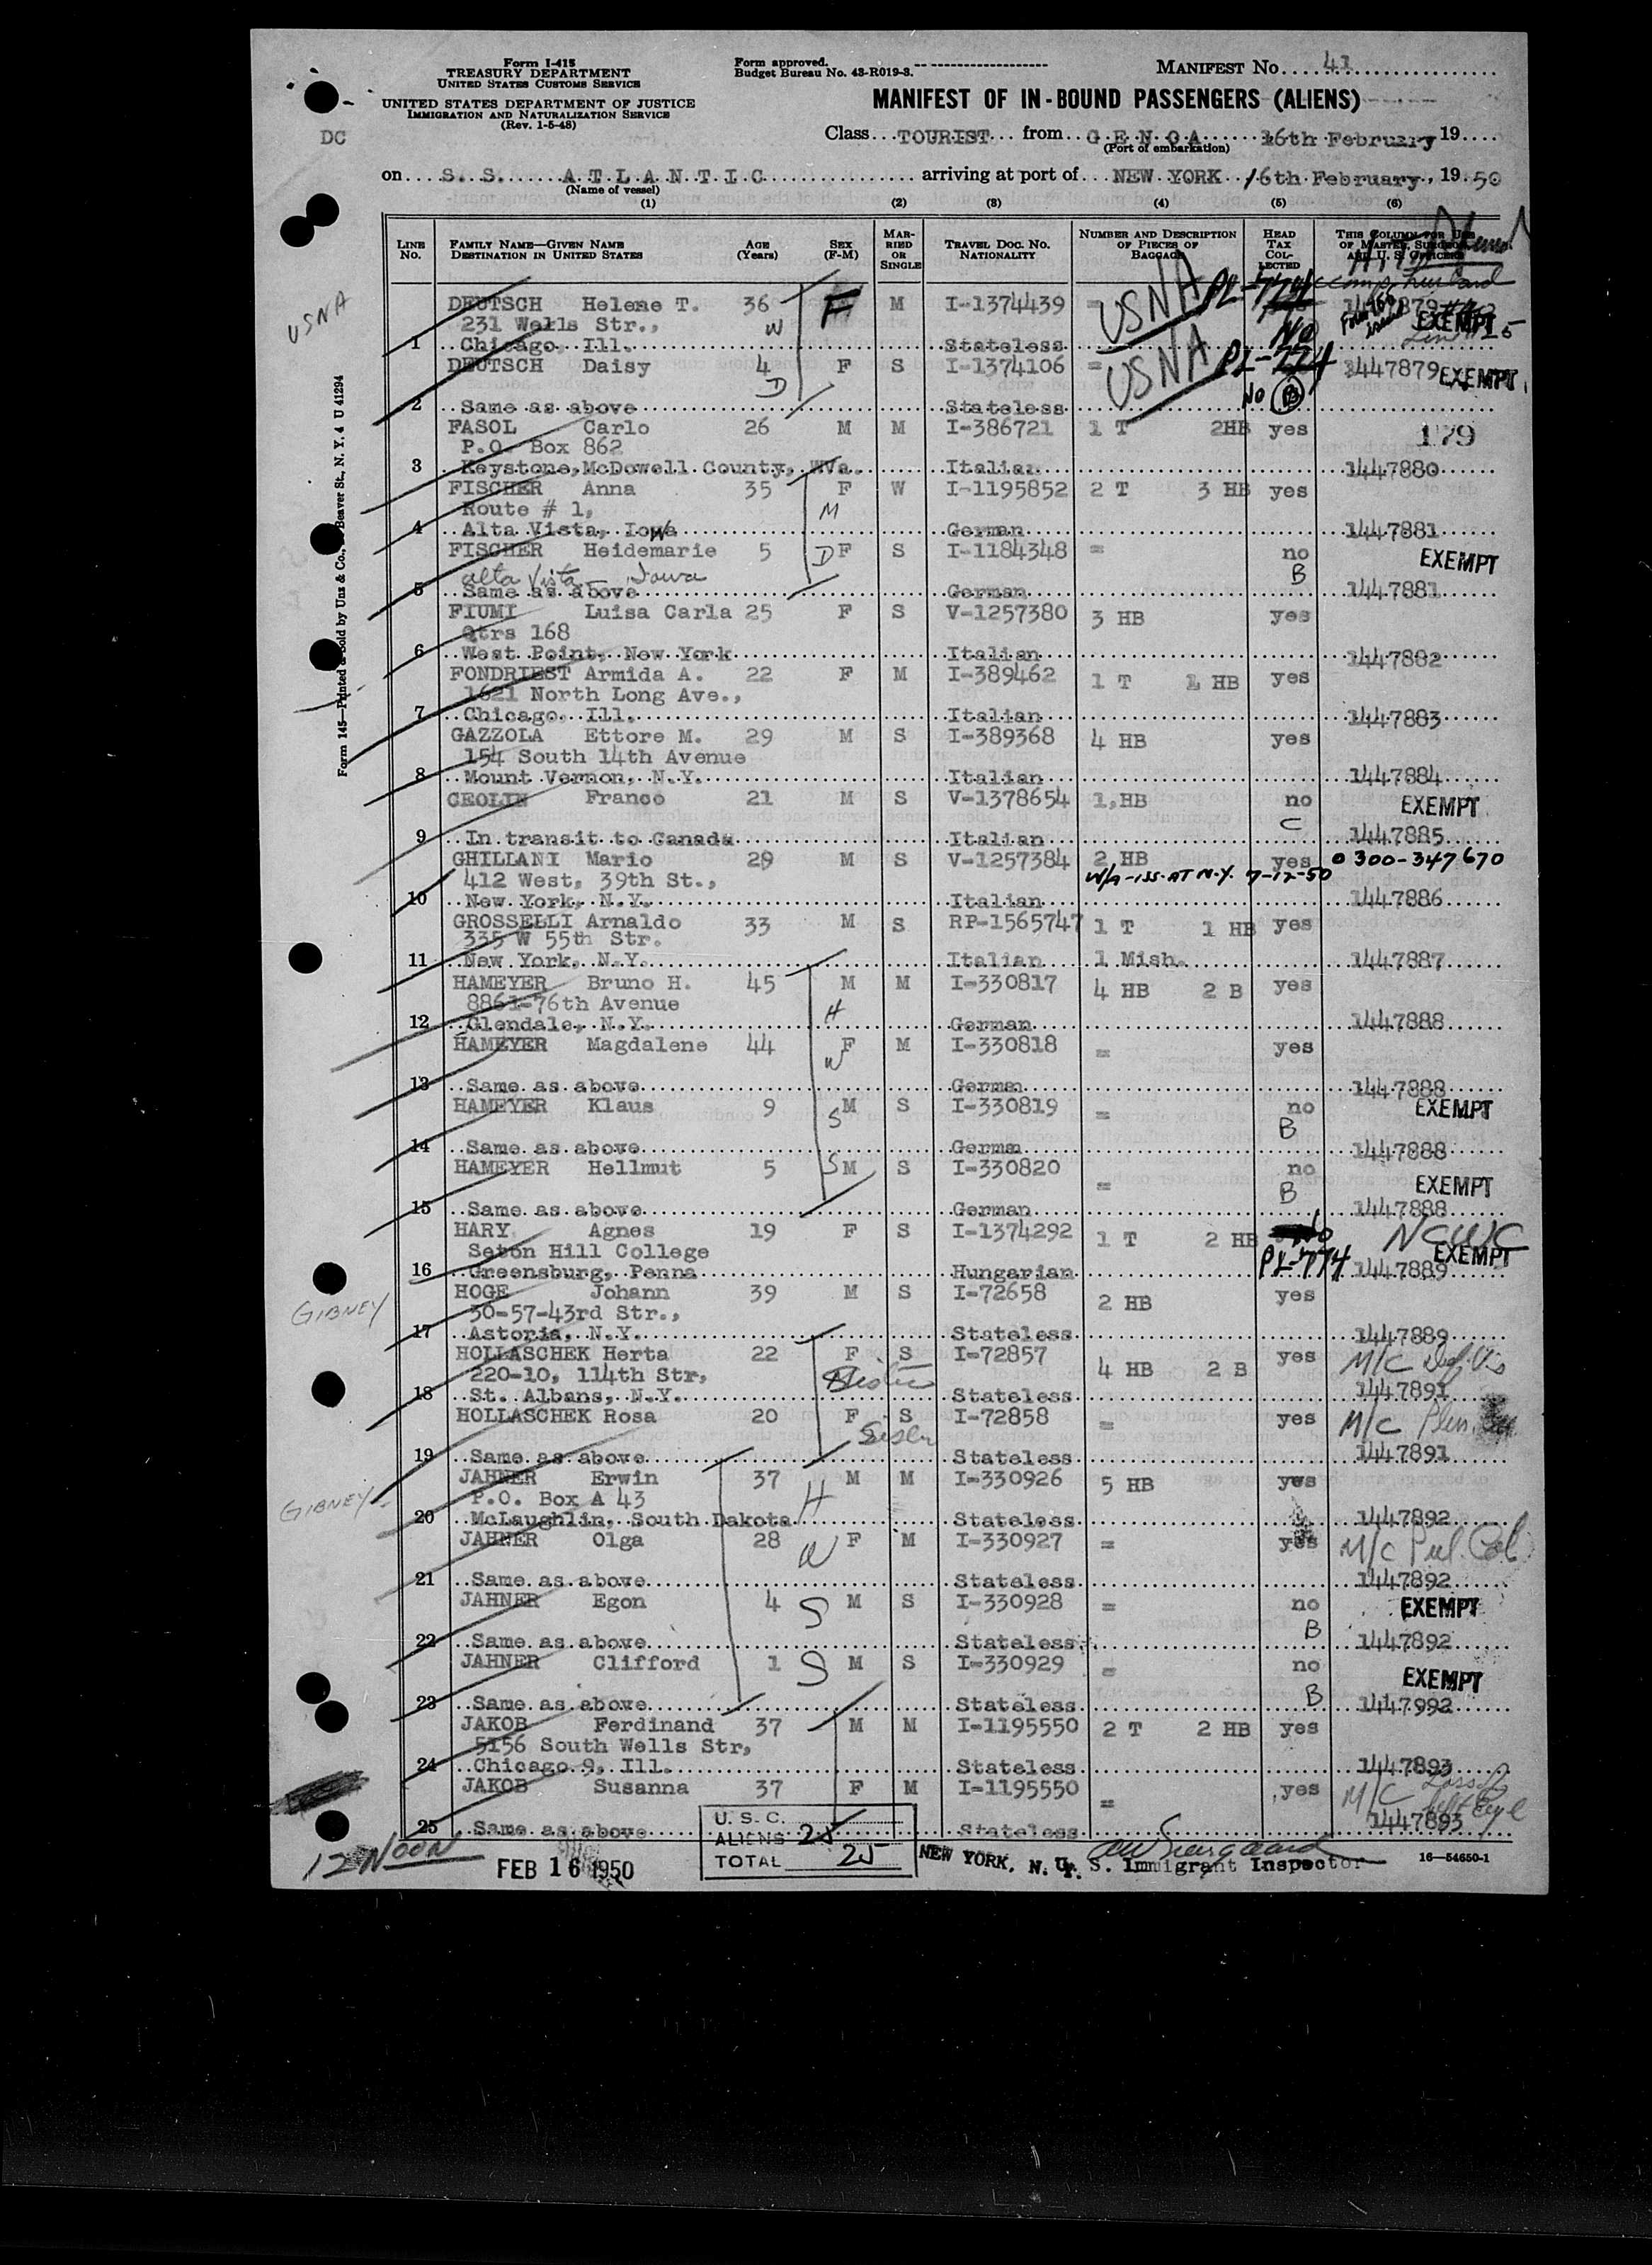 Form I-415
TREASURY DEPARTMENT
UNITED STATES CUSTOMS SERVICE
UNITED STATES DEPARTMENT OF JUSTICE
IMMIGRATION AND NATURALIZATION SERVICE
(Rev. 1-5-48)
Form approved.
Budget Bureau No. 43-R019-3.
MANIFEST No. 43
MANIFEST OF IN-BOUND PASSENGERS (ALIENS)
DC
Class TOURIST from GENOA 16th February 19
(Port of embarkation)
on S. S. ATLANTIC arriving at port of NEW YORK 16th February, 1950
(Name of vessel)
(1) (2) (3) (4) (5) (6)
LINE No. FAMILY NAME—GIVEN NAME DESTINATION IN UNITED STATES AGE (Years) SEX (F-M) MARRIED OR SINGLE TRAVEL DOC. No. NATIONALITY NUMBER AND DESCRIPTION OF PIECES OF BAGGAGE HEAD TAX COLLECTED THIS COLUMN FOR USE OF MASTER, SURGEON, AND U. S. OFFICERS
USNA
DEUTSCH Helene T. 36 W F M I-1374439 = USNA PL-774 No husband EXEMPT
231 Wells Str.,
1 Chicago, Ill. Stateless
DEUTSCH Daisy 4 D F S I-1374106 = USNA PL-774 No B 1447879 EXEMPT
2 Same as above Stateless
FASOL Carlo 26 M M I-386721 1 T 2HB yes 179
P.O. Box 862
3 Keystone, McDowell County, WVa. Italian 1447880
FISCHER Anna 35 F W I-1195852 2 T 3 HB yes
Route # 1, M
4 Alta Vista, Iowa German 1447881
FISCHER Heidemarie 5 D F S I-1184348 = no B EXEMPT
Alta Vista - Iowa
5 Same as above German 1447881
FIUMI Luisa Carla 25 F S V-1257380 3 HB yes
Qtrs 168
6 West Point, New York Italian 1447882
FONDRIEST Armida A. 22 F M I-389462 1 T 1 HB yes
1621 North Long Ave.,
7 Chicago, Ill. Italian 1447883
GAZZOLA Ettore M. 29 M S I-389368 4 HB yes
154 South 14th Avenue
8 Mount Vernon, N.Y. Italian 1447884
CEOLIN Franco 21 M S V-1378654 1,HB no C EXEMPT
9 In transit to Canada Italian 1447885
GHILLANI Mario 29 M S V-1257384 2 HB yes 0300-347670
412 West, 39th St., W/A-ISS. AT N.Y. 7-12-50
10 New York, N.Y. Italian 1447886
GROSSELLI Arnaldo 33 M S RP-1565747 1 T 1 HB yes
335 W 55th Str.
11 New York, N.Y. Italian 1 Mish. 1447887
HAMEYER Bruno H. 45 M M I-330817 4 HB 2 B yes
8861-76th Avenue H
12 Glendale, N.Y. German 1447888
HAMEYER Magdalene 44 W F M I-330818 = yes
13 Same as above German 1447888
HAMEYER Klaus 9 S M S I-330819 = no B EXEMPT
14 Same as above German 1447888
HAMEYER Hellmut 5 S M S I-330820 = no B EXEMPT
15 Same as above German 1447888
HARY Agnes 19 F S I-1374292 1 T 2 HB No NCWC
Seton Hill College PL-774 EXEMPT
16 Greensburg, Penna Hungarian 1447889
GIBNEY
HOGE Johann 39 M S I-72658 2 HB yes
30-57-43rd Str.,
17 Astoria, N.Y. Stateless 1447889
HOLLASCHEK Herta 22 F S I-72857 4 HB 2 B yes M/C Def. Vis
220-10, 114th Str, Sister
18 St. Albans, N.Y. Stateless 1447891
HOLLASCHEK Rosa 20 F S I-72858 = yes M/C
Sister
19 Same as above Stateless 1447891
GIBNEY
JAHNER Erwin 37 H M M I-330926 5 HB yes
P.O. Box A 43
20 McLaughlin, South Dakota Stateless 1447892
JAHNER Olga 28 W F M I-330927 = yes M/C
21 Same as above Stateless 1447892
JAHNER Egon 4 S M S I-330928 = no B EXEMPT
22 Same as above Stateless 1447892
JAHNER Clifford 1 S M S I-330929 = no B EXEMPT
23 Same as above Stateless 1447992
JAKOB Ferdinand 37 M M I-1195550 2 T 2 HB yes
5156 South Wells Str,
24 Chicago 9, Ill. Stateless 1447893
JAKOB Susanna 37 F M I-1195550 = yes M/C
25 Same as above Stateless 1447893
12 NOON
FEB 16 1950
U. S. C.
ALIENS 25
TOTAL 25
NEW YORK, N. Y.
U. S. Immigrant Inspector
16—54650-1